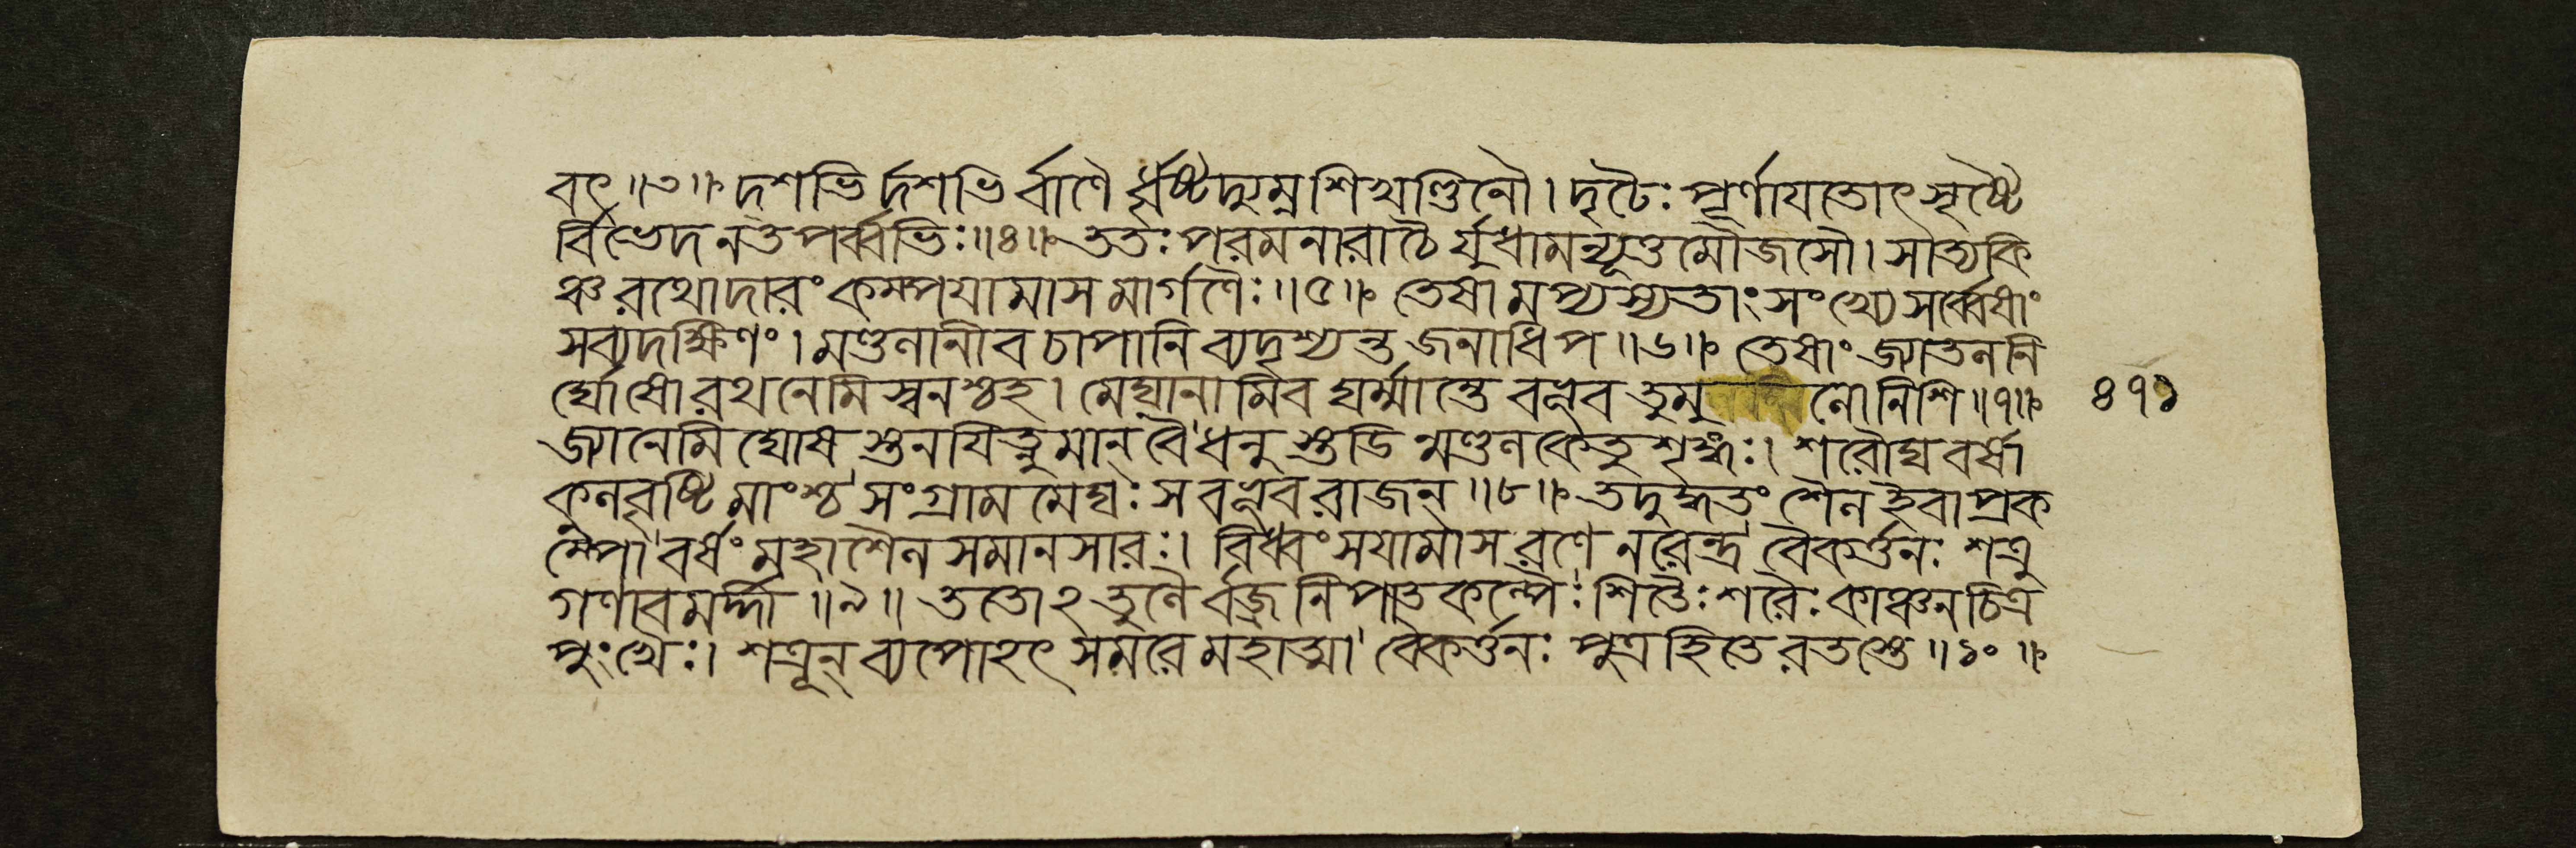 বৎ॥৩॥ দশভির্দশভির্বাণৈর্ধৃষ্টদ্যুম্নশিখণ্ডিনৌ। দৃঢৈঃ পূর্ণাযতোৎসৃষ্টৈ
র্বিভেদ নতপর্ব্বভিঃ॥৪॥ ততঃ পরমনারাচৈর্যুধামন্যূত্তমৌজসৌ। সাত্যকি
ঞ্চ রথোদারং কম্পযামাস মার্গণৈঃ॥৫॥ তেষামপ্যস্যতাং সংখ্যে সর্ব্বেষাং
সব্যদক্ষিণং। মণ্ডলানীব চাপানি ব্যদৃশ্যন্ত জনাধিপ॥৬॥ তেষাং জ্যাতলনি
র্ঘোষো রথনেমিস্বনশ্চহ। মেঘানামিব ঘর্ম্মান্তে বভূব তুমুলো নিশি॥৭॥ ৪৭১
জ্যানেমিঘোষস্তনযিত্নুমান্ বৈ ধনুস্তডিন্মণ্ডলকেতুশৃঙ্গঃ। শরৌঘবর্ষা
কুলবৃষ্টিমাংশ্চ সংগ্রামমেঘঃ স বভূব রাজন্॥৮॥ তদুদ্ধতং শৈল ইবাপ্রক
ম্পো বর্ষং মহাশৈলসমানসারঃ। বিধ্বংসযামাস রণে নরেন্দ্র বৈকর্ত্তনঃ শত্রু
গণাবমর্দ্দী॥৯॥ ততোঽতুলৈর্বজ্রনিপাতকল্পৈঃ শিতৈঃ শরৈঃ কাঞ্চনচিত্র
পুংখৈঃ। শত্রূন্ ব্যপোহৎ সমরে মহাত্মা বৈকর্ত্তনঃ পুত্রহিতে রতস্তে॥১০॥